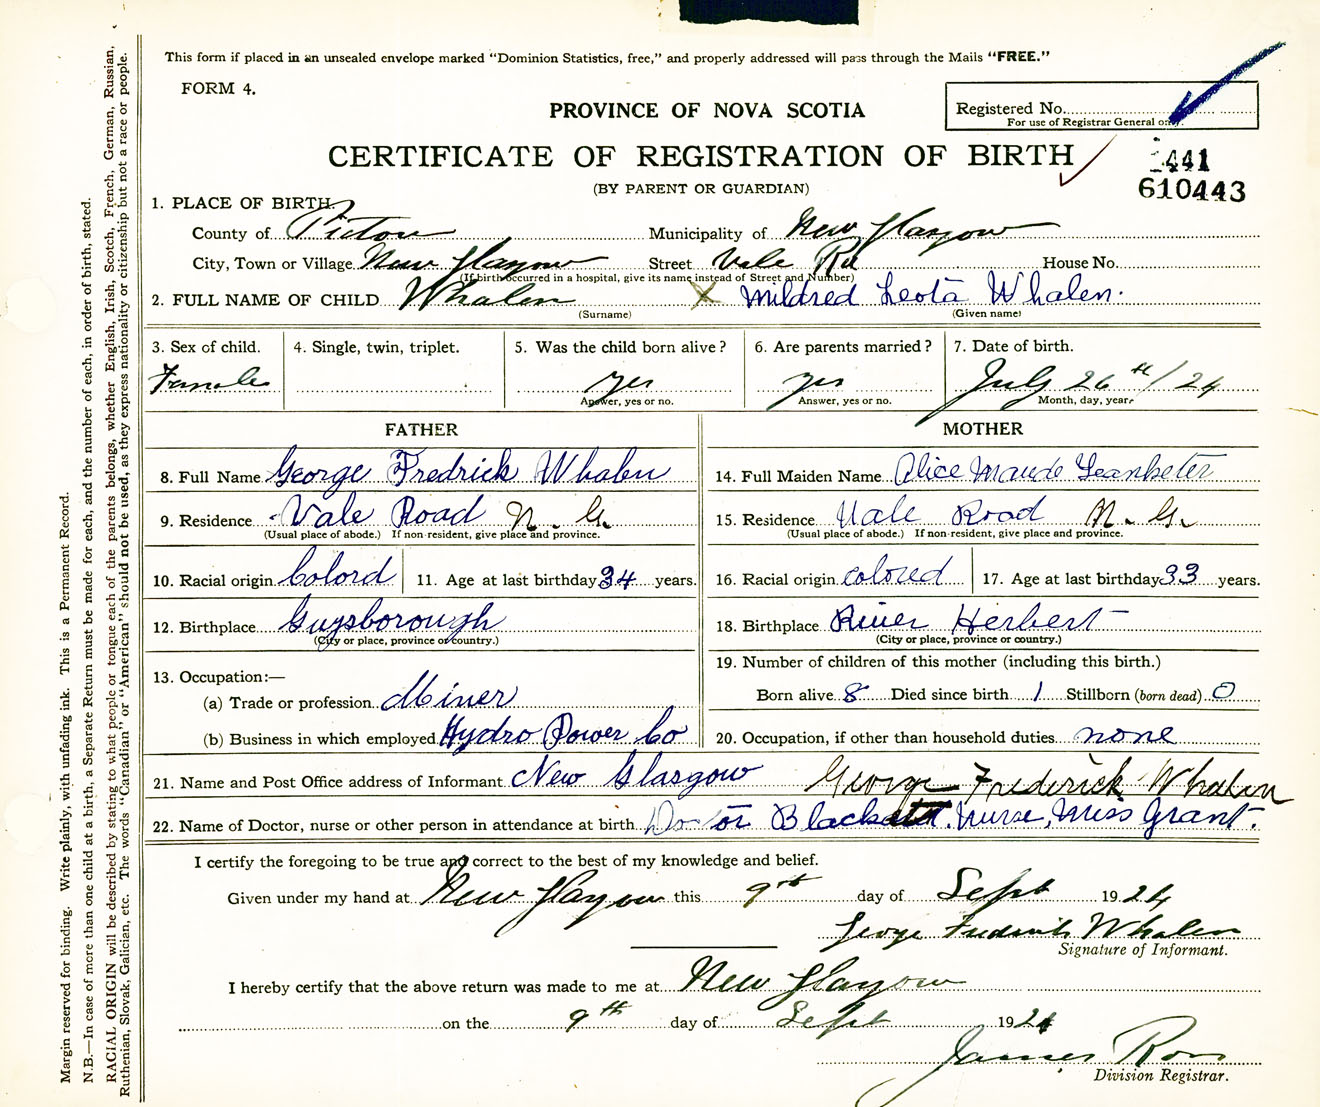 This form if placed in an unsealed envelope marked "Dominion Statistics, free," and properly addressed will pass through the Mails "FREE."
FORM 4.
Registered No.
For use of Registrar General only.
PROVINCE OF NOVA SCOTIA
CERTIFICATE OF REGISTRATION OF BIRTH
441
(BY PARENT OR GUARDIAN)
610443
1. PLACE OF BIRTH.
County of Pictou Municipality of New Glasgow
City, Town or Village New Glasgow Street Vale Rd House No.
(If birth occurred in a hospital, give its name instead of Street and Number)
2. FULL NAME OF CHILD Whalen X Mildred Leota Whalen.
(Surname) (Given name)
3. Sex of child. 4. Single, twin, triplet. 5. Was the child born alive? 6. Are parents married? 7. Date of birth.
Female yes yes July 26th/24
Answer, yes or no. Answer, yes or no. Month, day, year.
FATHER MOTHER
8. Full Name George Fredrick Whalen 14. Full Maiden Name Alice Maude
9. Residence Vale Road N. G. 15. Residence Vale Road N. G.
(Usual place of abode.) If non-resident, give place and province. (Usual place of abode.) If non-resident, give place and province.
10. Racial origin Colord 11. Age at last birthday 34 years. 16. Racial origin colored 17. Age at last birthday 33 years.
12. Birthplace Guysborough 18. Birthplace River Herbert
(City or place, province or country.) (City or place, province or country.)
13. Occupation:— 19. Number of children of this mother (including this birth.)
(a) Trade or profession Miner Born alive 8 Died since birth 1 Stillborn (born dead) 0
(b) Business in which employed Hydro Power Co 20. Occupation, if other than household duties none
21. Name and Post Office address of Informant New Glasgow George Frederick Whalen
22. Name of Doctor, nurse or other person in attendance at birth Doctor Nurse, Miss Grant.
I certify the foregoing to be true and correct to the best of my knowledge and belief.
Given under my hand at New Glasgow this 9th day of Sept 1924
George Frederick Whalen
Signature of Informant.
I hereby certify that the above return was made to me at New Glasgow
on the 9th day of Sept 1924
James Ross
Division Registrar.
Margin reserved for binding. Write plainly, with unfading ink. This is a Permanent Record.
N.B.—In case of more than one child at a birth, a Separate Return must be made for each, and the number of each, in order of birth, stated.
RACIAL ORIGIN will be described by stating to what people or tongue each of the parents belongs, whether English, Irish, Scotch, French, German, Russian,
Ruthenian, Slovak, Galician, etc. The words "Canadian" or "American" should not be used, as they express nationality or citizenship but not a race or people.